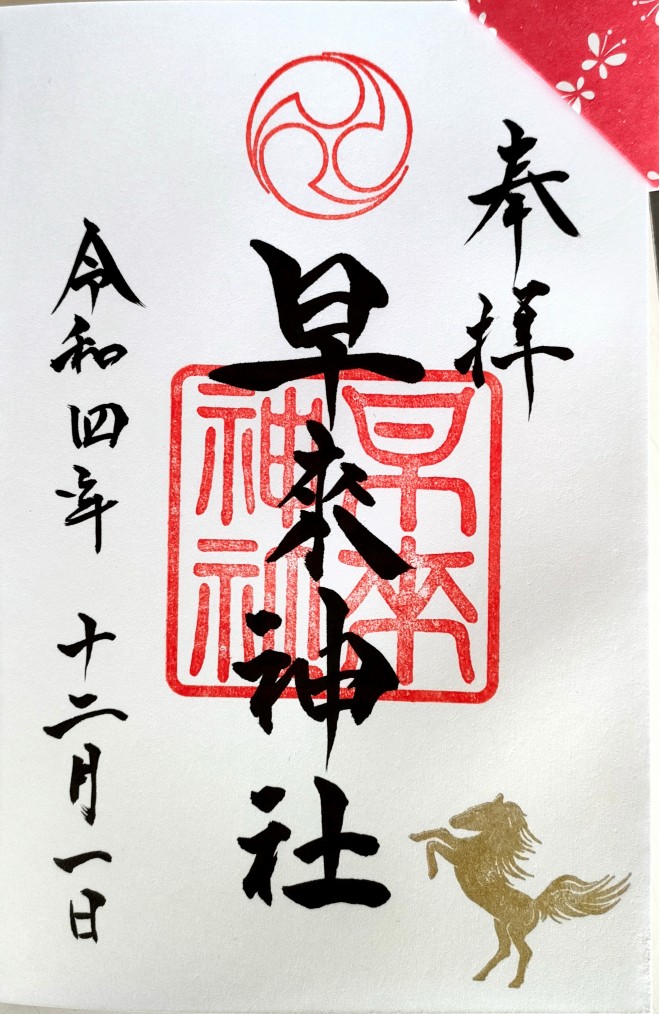 奉拝
早來神社
早来神社
令和四年 十二月一日